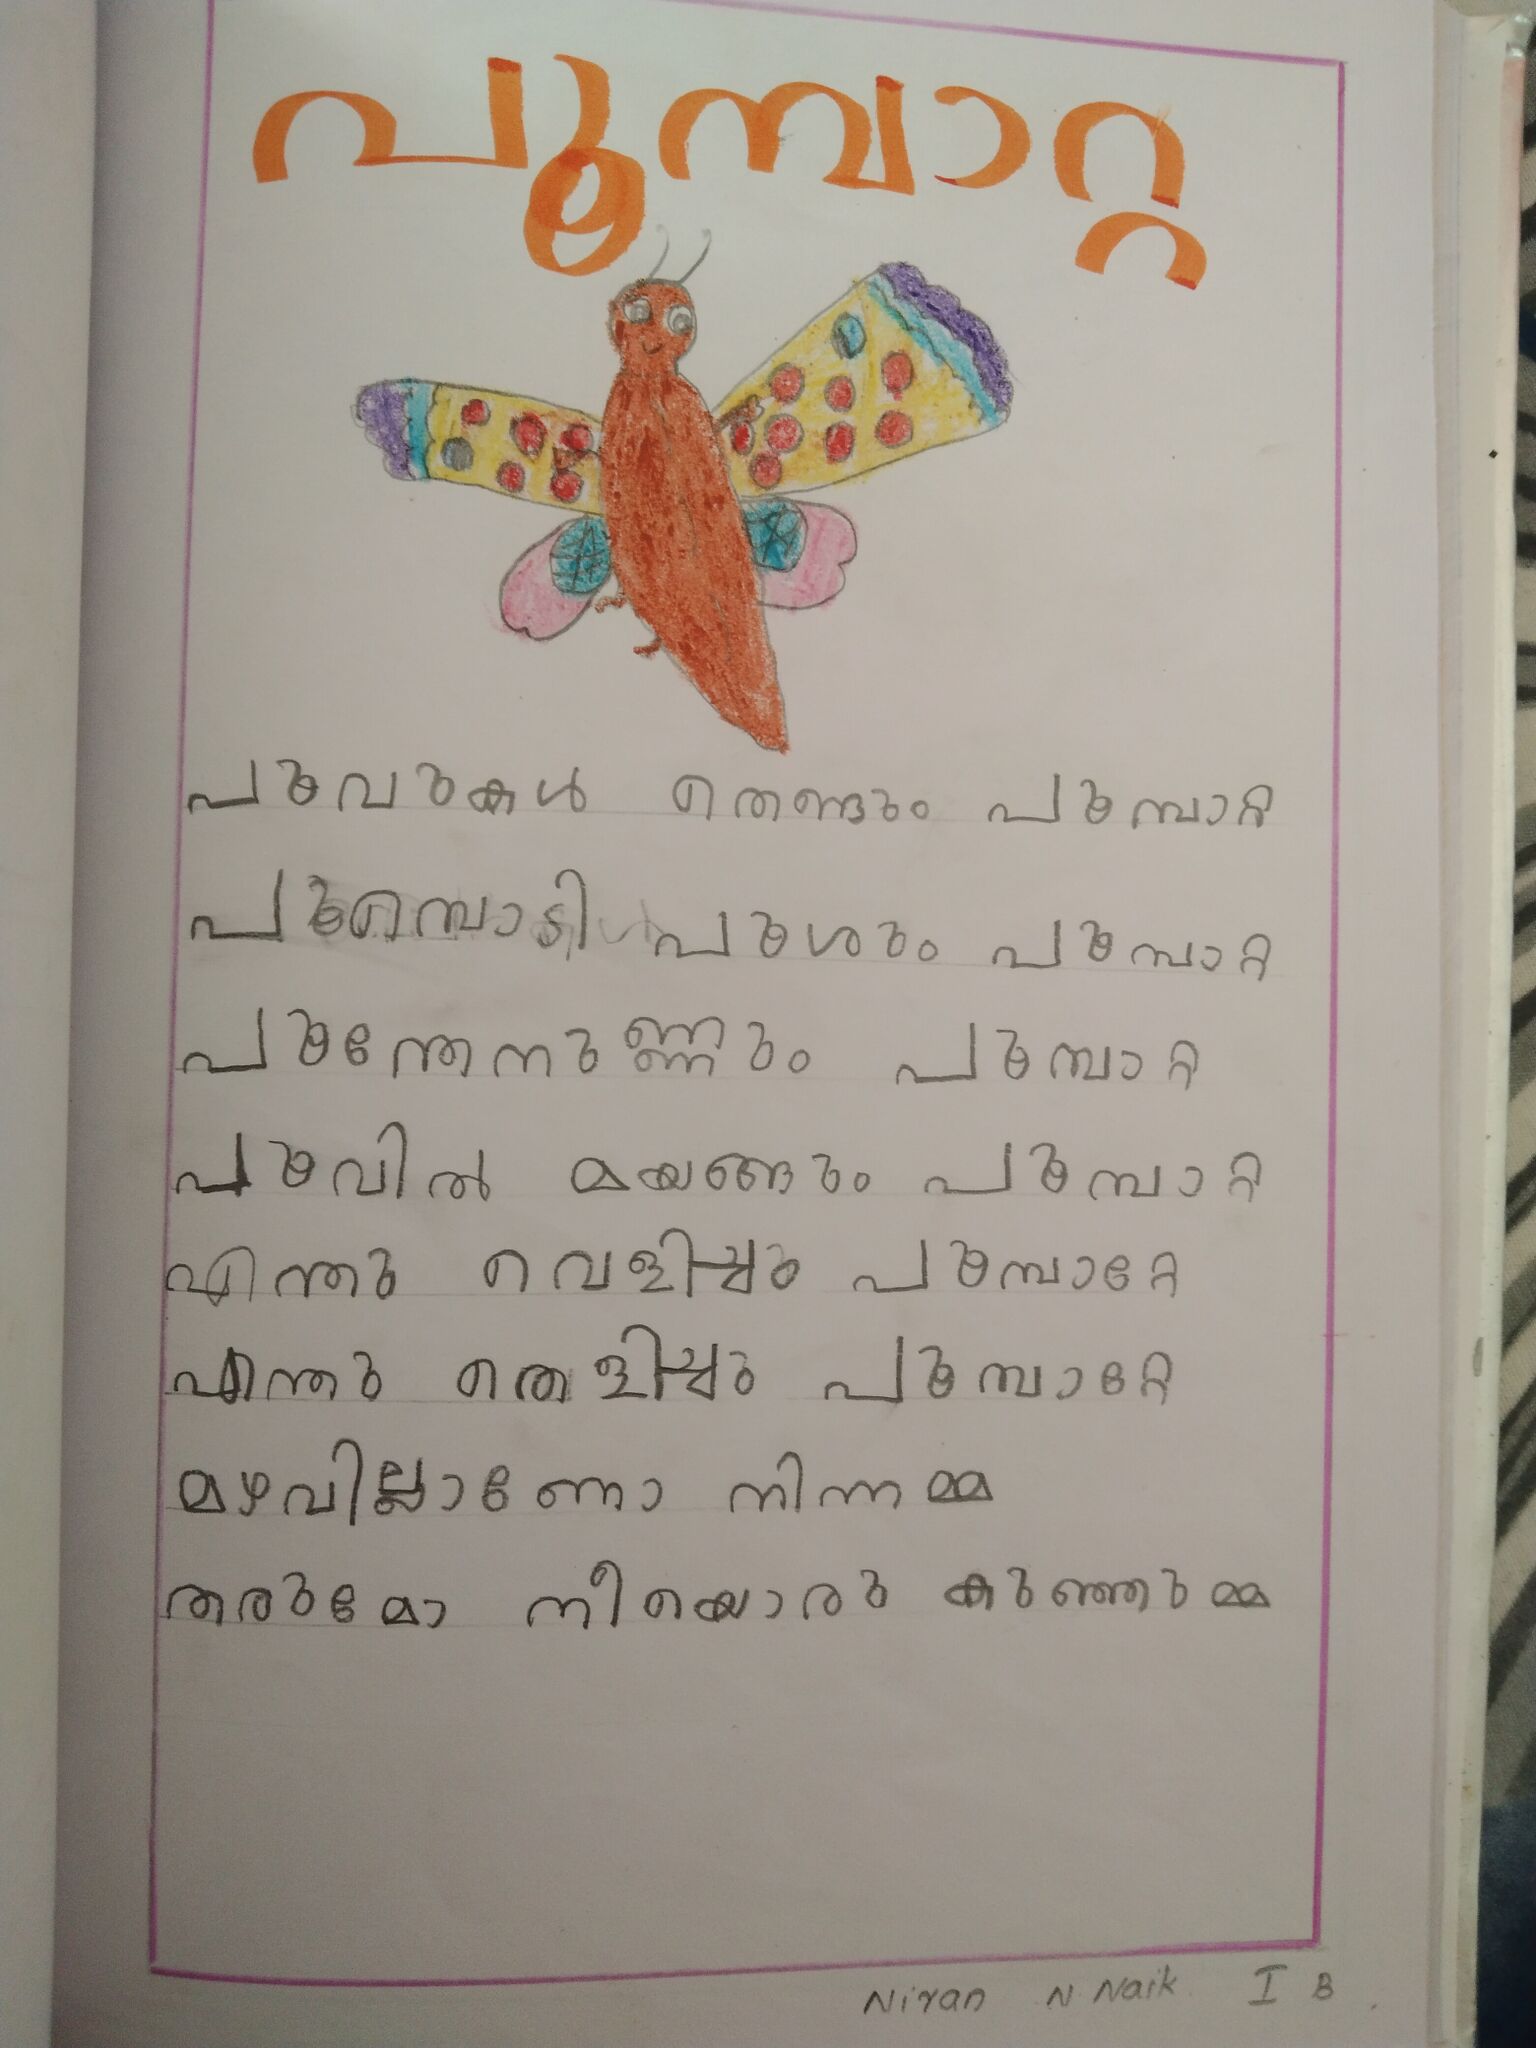 പൂമ്പാറ്റ
പൂവുകൾ തെണ്ടും പൂമ്പാറ്റ
പൂമ്പൊടി പൂശും പൂമ്പാറ്റ
പൂന്തേനുണ്ണും പൂമ്പാറ്റ
പൂവിൽ മയങ്ങും പൂമ്പാറ്റ
എന്തു വെളിച്ചം പൂമ്പാറ്റേ
എന്തു തെളിച്ചം പൂമ്പാറ്റേ
മഴവില്ലാണോ നിന്നമ്മ
തരുമോ നീയൊരു കുഞ്ഞുമ്മ
Niran N Naik I B